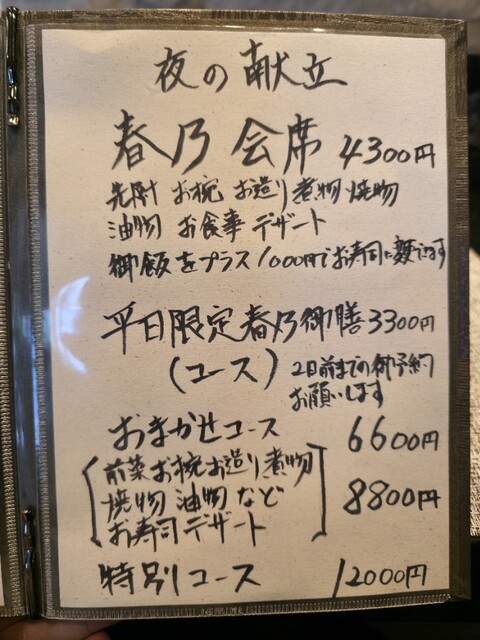 夜の献立
春乃 会席 4300円
先附 お椀 お造り 煮物 焼物
油物 お食事 デザート
御飯をプラス1000円でお寿司に変できます
平日限定春乃御膳3300円
(コース) 2日前までの御予約
お願いします
おまかせコース 6600円
前菜お椀お造り煮物
焼物 油物 など 8800円
お寿司デザート
特別コース 12000円